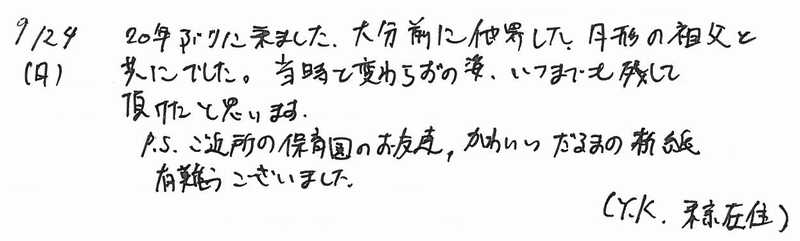 9/24 20年ぶりに来ました。大分前に他界した、月形の祖父と
(月) 共にでした。当時と変わらずの姿、いつまでも残して
頂けたらと思います。
P.S. ご近所の保育園のお友達、かわいいだるまの折り紙
有難うございました。
(Y.K. 東京在住)